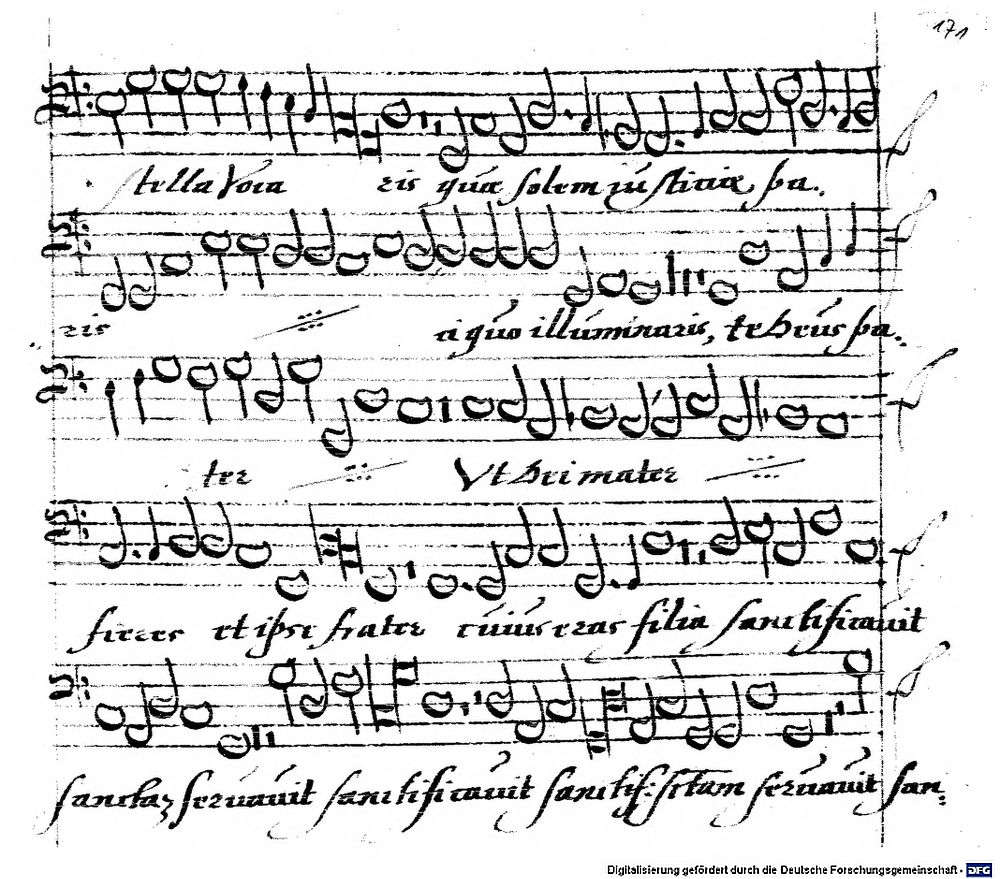 171
stella voca ris quæ solem iustitiæ pa.
ris a quo illuminaris, te Deus pa.
ter Vt Dei mater
fieres et ipse frater cuius eras filia sanctificauit
sanctā seruauit sanctificauit sanctif: sctam seruauit san:
Digitalisierung gefördert durch die Deutsche Forschungsgemeinschaft - DFG